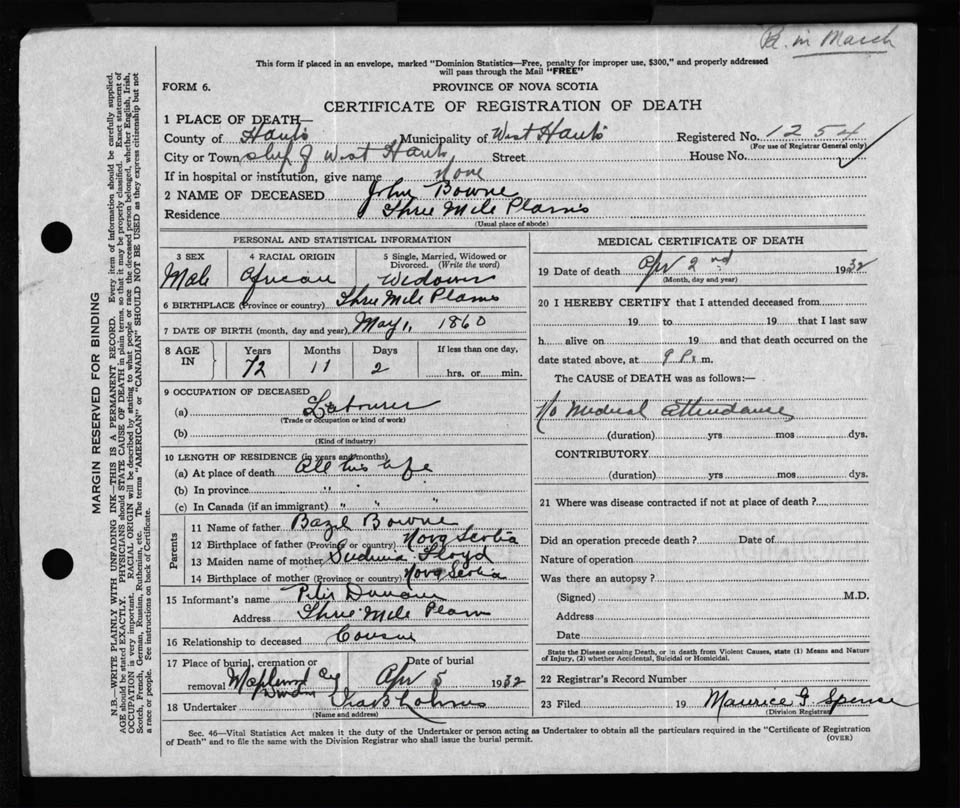 in March
This form if placed in an envelope, marked "Dominion Statistics—Free, penalty for improper use, $300," and properly addressed
will pass through the Mail "FREE"
FORM 6.
PROVINCE OF NOVA SCOTIA
CERTIFICATE OF REGISTRATION OF DEATH
1 PLACE OF DEATH—
County of Hants Municipality of West Hants Registered No. 1254
(For use of Registrar General only)
City or Town of West Hants Street House No.
If in hospital or institution, give name None
2 NAME OF DECEASED John Bowne
Residence Three Mile Plains
(Usual place of abode)
MARGIN RESERVED FOR BINDING
N.B.—WRITE PLAINLY WITH UNFADING INK—THIS IS A PERMANENT RECORD. Every item of information should be carefully supplied.
AGE should be stated EXACTLY. PHYSICIANS should STATE CAUSE OF DEATH in plain terms, so that it may be properly classified. Exact statement of
OCCUPATION is very important. RACIAL ORIGIN will be described by stating to what people or race the deceased person belonged, whether English, Irish,
Scotch, French, German, Russian, Ruthenian, etc. The terms "AMERICAN" or "CANADIAN" SHOULD NOT BE USED as they express citizenship but not
a race or people. See instructions on back of Certificate.
PERSONAL AND STATISTICAL INFORMATION
3 SEX
Male
4 RACIAL ORIGIN
African
5 Single, Married, Widowed or
Divorced. (Write the word)
Widower
6 BIRTHPLACE (Province or country) Three Mile Plains
7 DATE OF BIRTH (month, day and year) May 1, 1860
8 AGE IN
Years Months Days If less than one day,
72 11 2 hrs. or min.
9 OCCUPATION OF DECEASED
(a) Labourer
(Trade or occupation or kind of work)
(b)
(Kind of industry)
10 LENGTH OF RESIDENCE (in years and months)
(a) At place of death All his life
(b) In province " " "
(c) In Canada (if an immigrant) " " "
Parents
11 Name of father Bazel Bowne
12 Birthplace of father (Province or country) Nova Scotia
13 Maiden name of mother Floyd
14 Birthplace of mother (Province or country) Nova Scotia
15 Informant's name Peter
Address Three Mile Plains
16 Relationship to deceased Cousin
17 Place of burial, cremation or
removal
Windsor
Date of burial
Apr 5 1932
18 Undertaker
(Name and address)
MEDICAL CERTIFICATE OF DEATH
19 Date of death Apr 2nd 1932
(Month, day and year)
20 I HEREBY CERTIFY that I attended deceased from
19 to 19 that I last saw
h alive on 19 and that death occurred on the
date stated above, at 9 P. m.
The CAUSE OF DEATH was as follows:—
No Medical attendance
(duration) yrs mos dys.
CONTRIBUTORY
(duration) yrs mos dys.
21 Where was disease contracted if not at place of death?
Did an operation precede death? Date of
Nature of operation
Was there an autopsy?
(Signed) M.D.
Address
Date
State the Disease causing Death, or in death from Violent Causes, state (1) Means and Nature
of Injury, (2) whether Accidental, Suicidal or Homicidal.
22 Registrar's Record Number
23 Filed 19 Maurice G Spence
(Division Registrar)
Sec. 46—Vital Statistics Act makes it the duty of the Undertaker or person acting as Undertaker to obtain all the particulars required in the "Certificate of Registration
of Death" and to file the same with the Division Registrar who shall issue the burial permit.
(OVER)